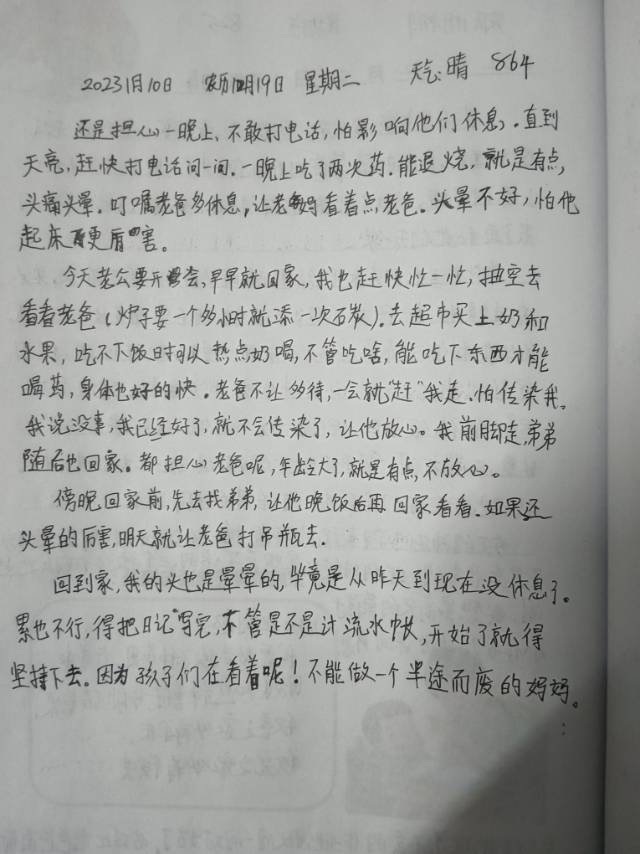 2023 1月10日 农历12月19日 星期二 天气:晴 864
还是担心一晚上、不敢打电话，怕影响他们休息。直到
天亮，赶快打电话问一问.一晚上吃了两次药.能退烧，就是有点，
头痛头晕.叮嘱老爸多休息，让老妈看着点老爸.头晕不好，怕他
起床更厉害。
今天老公要开会，早早就回家，我也赶快忙一忙，抽空去
看看老爸（炉子要一个多小时就添一次石炭）.去超市买上奶和
水果，吃不下饭时可以热点奶喝，不管吃啥，能吃下东西才能
喝药，身体也好的快.老爸不让多待，一会就"赶"我走.怕传染我。
我说没事，我已经好了，就不会传染了，让他放心。我前脚走，弟弟
随后也回家。都担心老爸呢，年龄大了，就是有点，不放心。
傍晚回家前，先去找弟弟，让他晚饭后再回家看看.如果还
头晕的厉害，明天就让老爸打吊瓶去.
回到家，我的头也是晕晕的，毕竟是从昨天到现在没休息了。
累也不行，得把日记写完，不管是不是计流水帐，开始了就得
坚持下去。因为孩子们在看着呢！不能做一个半途而废的妈妈。